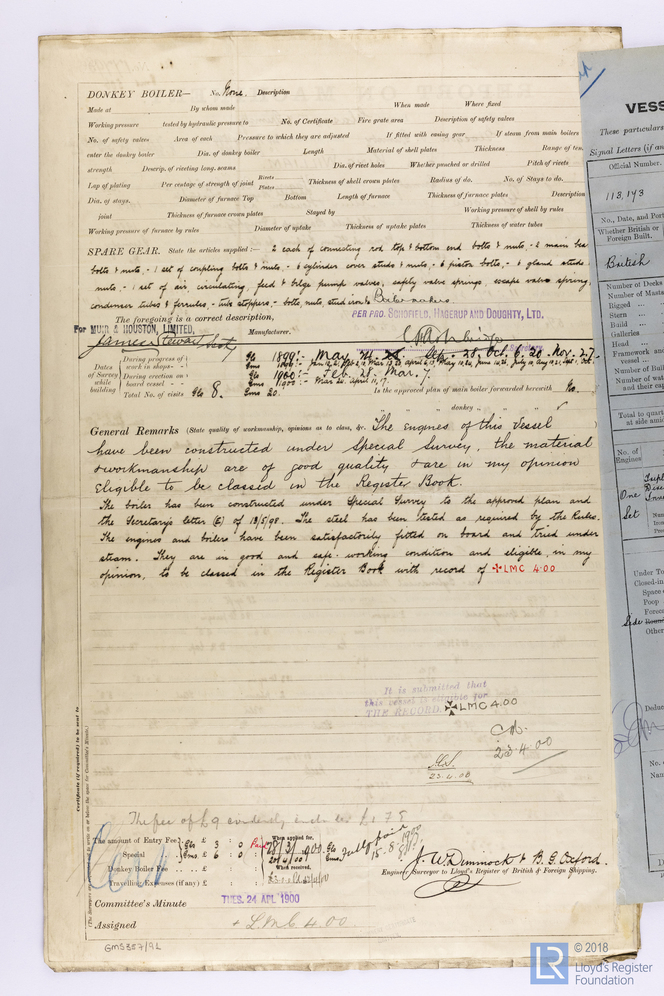 DONKEY BOILER— No. None. Description
Made at By whom made When made Where fixed
Working pressure tested by hydraulic pressure to No. of Certificate Fire grate area Description of safety valves
No. of safety valves Area of each Pressure to which they are adjusted If fitted with easing gear If steam from main boilers
enter the donkey boiler Dia. of donkey boiler Length Material of shell plates Thickness Range of ten
strength Descrip. of riveting long. seams Dia. of rivet holes Whether punched or drilled Pitch of rivets
Lap of plating Per centage of strength of joint Rivets Plates Thickness of shell crown plates Radius of do. No. of Stays to do.
Dia. of stays. Diameter of furnace Top Bottom Length of furnace Thickness of furnace plates Description
joint Thickness of furnace crown plates Stayed by Working pressure of shell by rules
Working pressure of furnace by rules Diameter of uptake Thickness of uptake plates Thickness of water tubes
SPARE GEAR. State the articles supplied:— 2 each of connecting rod top & bottom end bolts & nuts - 2 main bea
bolts & nuts, - 1 set of coupling bolts & nuts, - 6 cylinder cover studs & nuts - 6 piston bolts, - 6 gland studs
nuts, - 1 set of air, circulating, feed & bilge pump valves, safety valve springs, escape valve spring,
condenser tubes & ferrules, - tube stoppers, - bolts, nuts, stud irons & Boilermakers
The foregoing is a correct description, PER PRO. SCHOFIELD, HAGERUP AND DOUGHTY, LTD.
For MUIR & HOUSTON, LIMITED, Manufacturer.
James Stewart Secty
Secretary.
Dates of Survey while building
During progress of work in shops— Gls 1899:- Mar. 21. Sep. 28. Oct. 6. 20. Nov. 27.
During erection on board vessel— Gls 1900:- Feb. 28. Mar. 7.
Gms 1900:- Mar 20. april 11, 17.
Total No. of visits Gls 8. Gms 20. Is the approved plan of main boiler forwarded herewith No.
" " " donkey " " "
General Remarks (State quality of workmanship, opinions as to class, &c. The Engines of this Vessel
have been constructed under Special Survey, the material
& workmanship are of good quality & are in my opinion
Eligible to be classed in the Register Book.
The boiler has been constructed under Special Survey to the approved plan and
the Secretary's letter (E) of 18/5/98. The steel has been tested as required by the Rules.
The engines and boilers have been satisfactorily fitted on board and tried under
steam. They are in good and safe working condition and eligible, in my
opinion, to be classed in the Register Book with record of ✠LMC 4.00
It is submitted that
this vessel is eligible for
THE RECORD. ✠LMC 4.00
23.4.00
23.4.00
Certificate (if required) to be sent to
The fee of £9 evidently
The amount of Entry Fee £ When applied for,
Special £ Gls 3 : 0 28/3/1900
Gms 6 : 0 20/4/00
Donkey Boiler Fee £ When received,
Travelling Expenses (if any) £
J. W. Dimmock & B. G. Oxford.
Engineer Surveyor to Lloyd's Register of British & Foreign Shipping.
Committee's Minute TUES. 24 APL 1900
Assigned + LMC 4.00
GMS357/92
VESS
These particulars
Signal Letters (if an
Official Number.
113,193
No., Date, and Port
Whether British or
Foreign Built.
British
Number of Decks
Number of Masts
Rigged
Stern
Build
Galleries
Head
Framework and
vessel
Number of
Number of wat
and their cap
Total to quart
at side amid
No. of
Engines
One
Set
Under To
Closed-in
Space
Poop
Forec
Side
Other
Deduc
No.
Nam
© 2018
LR Lloyd's Register
Foundation